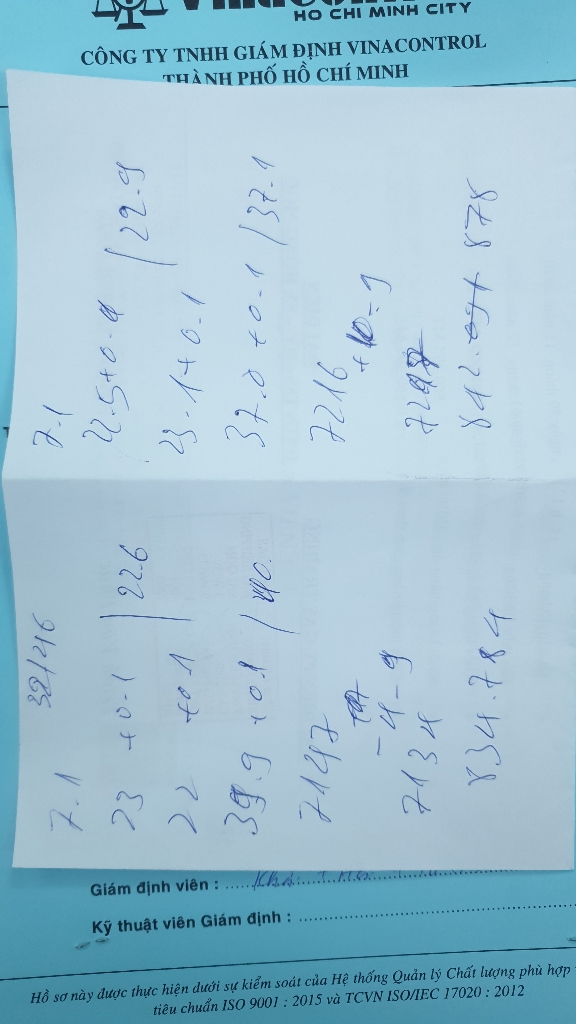 HO CHI MINH CITY
CÔNG TY TNHH GIÁM ĐỊNH VINACONTROL
THÀNH PHỐ HỒ CHÍ MINH
7.1
22.5+0.4 | 22.9
23.1+0.1
37.0 +0.1 | 37.1
7216
- 9
842. 878
7.1 32/46
23 +0.1 | 22.6
22 +0.1
39.9 +0.1 | 40.
7147
-4-9
7134
834.784
Giám định viên :
Kỹ thuật viên Giám định :
Hồ sơ này được thực hiện dưới sự kiểm soát của Hệ thống Quản lý Chất lượng phù hợp
tiêu chuẩn ISO 9001 : 2015 và TCVN ISO/IEC 17020 : 2012